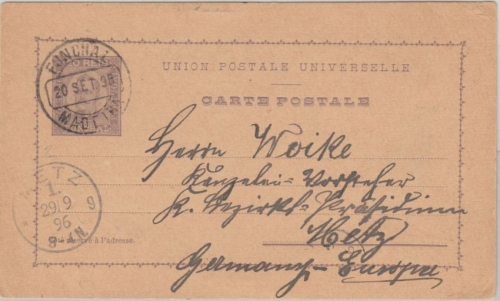 FUNCHAL
20 SET. 96
MADEIRA
UNION POSTALE UNIVERSELLE
CARTE POSTALE
Herrn Woike
Kanzelei-Vorsteher
K. Bezirks-Präsidium
Metz
Germany-Europa
METZ
1.
29/9
96
8-9 N
à l'adresse.